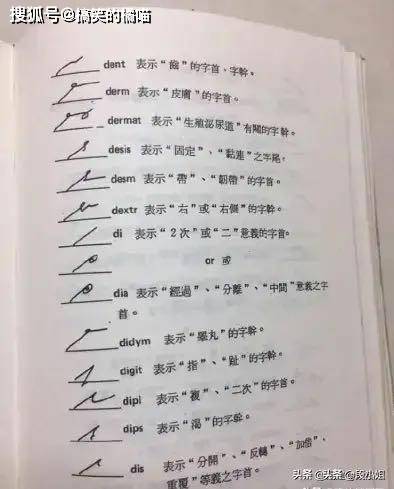 搜狐号@搞笑的橘喵
dent 表示“齒”的字首、字幹。
derm 表示“皮膚”的字首。
dermat 表示“生殖泌尿道”有關的字幹。
desis 表示“固定”、“黏連”之字尾。
desm 表示“帶”、“韌帶”的字首。
dextr 表示“右”或“右側”的字幹。
di 表示“2次”或“二”意義的字首。
or 或
dia 表示“經過”、“分離”、“中間”意義之字
首。
didym 表示“睪丸”的字幹。
digit 表示“指”、“趾”的字幹。
dipl 表示“複”、“二次”的字首。
dips 表示“渴”的字幹。
dis 表示“分開”、“反轉”、“加倍”、
重覆”等義之字首。
头条 @头条@段小姐